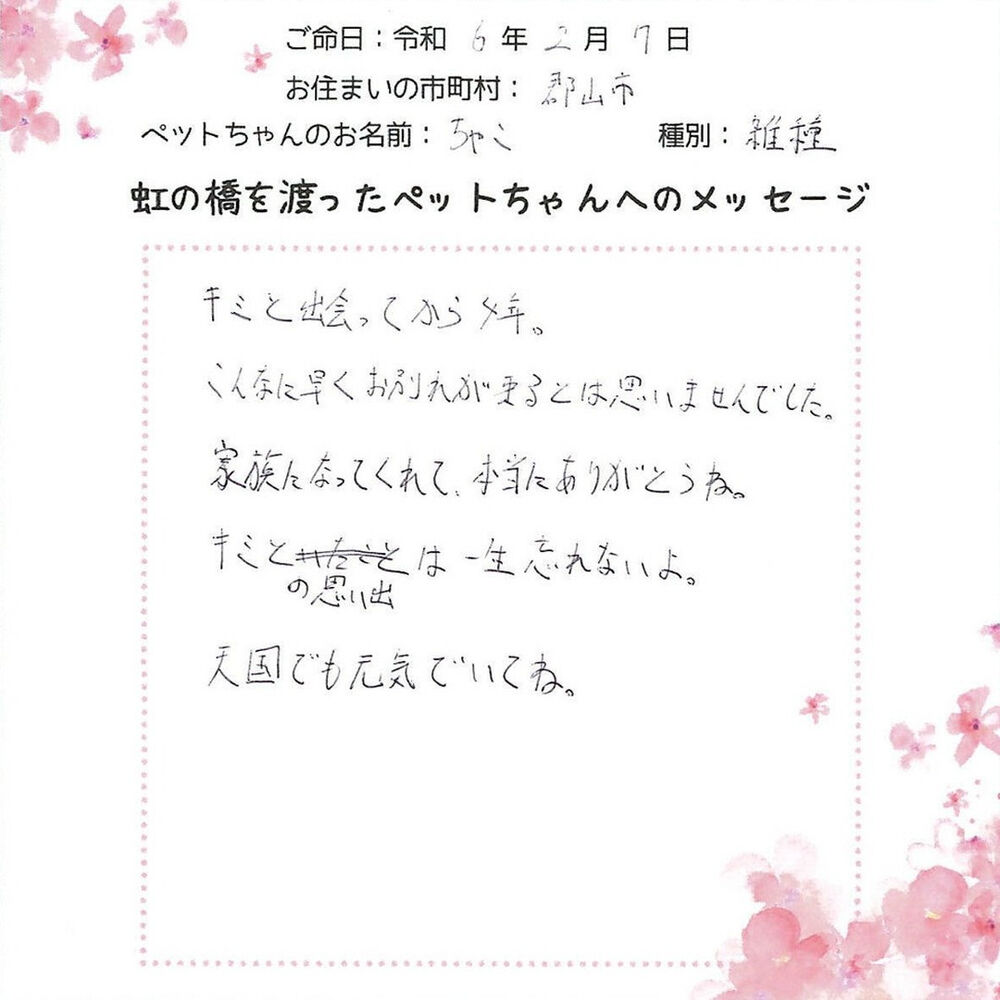 ご命日：令和 6 年 2 月 7 日
お住まいの市町村： 郡山市
ペットちゃんのお名前： ちゃこ 種別： 雑種
虹の橋を渡ったペットちゃんへのメッセージ
キミと出会ってから4年。
こんなに早くお別れが来るとは思いませんでした。
家族になってくれて、本当にありがとうね。
キミとは一生忘れないよ。
の思い出
天国でも元気でいてね。